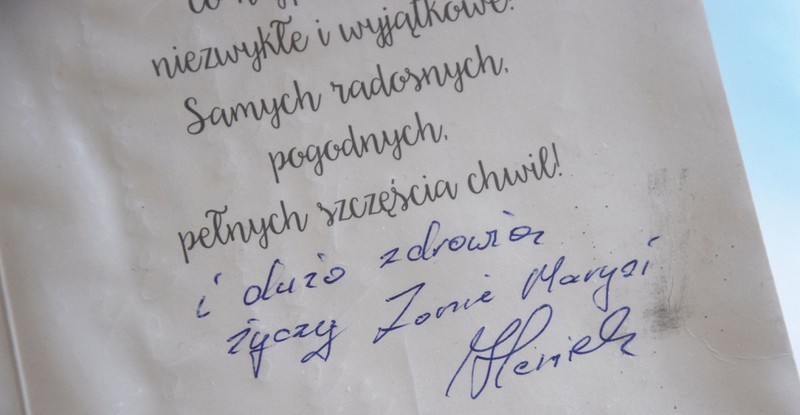 niezwykłe i wyjątkowe!
Samych radosnych,
pogodnych,
pełnych szczęścia chwil!
i dużo zdrowia
życzy Żonie Marysi
Heniek